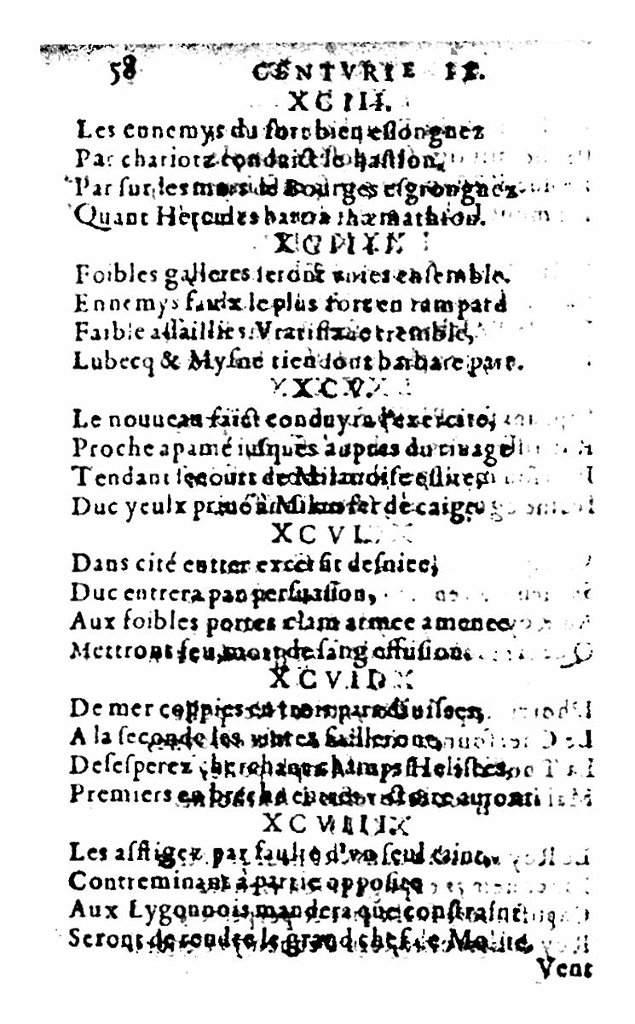 58 CENTVRIE IX.
XCIII.
Les ennemys du fort bien eslongnez
Par chariotz conduict le bastion,
Par sur les murs de Bourges esgrongnez
Quant Hercules
XCIIII
Foibles galleres seront vnies ensemble.
Ennemys faulx le plus fort en rampard
Faible assaillies Vratislaue tremble,
Lubecq & Mysne tiendront barbare part.
XCV.
Le nouueau faict conduyra l'exercite,
Proche apamé iusques aupres du riuage
Tendant secours de Milanoise eslite,
Duc yeulx priué à Milan fer de caige
XCVI.
Dans cité entrer excercit desniee,
Duc entrera par persuasion,
Aux foibles portes clam armee amenee
Mettront feu, mort de sang effusion.
XCVII
De mer coppies en trois pars diuisees,
A la seconde les viures failleront,
Desesperez cherchant champs Helisées,
Premiers en breche auront
XCVIII
Les affligez par faulte d'vn seul taint,
Contreminant à partie opposite
Aux Lygonnois mandera que constraint
Seront de rendre le grand chef de Molite,
Vent